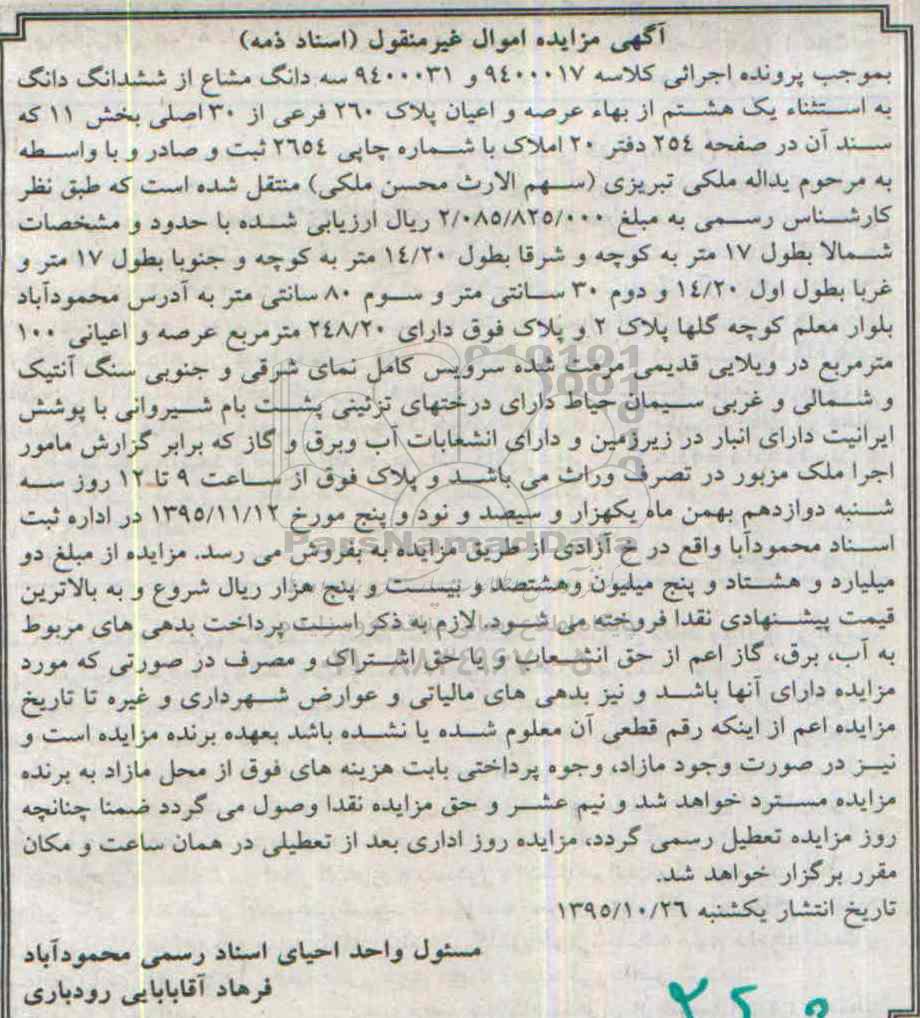 آگهی مزایده اموال غیرمنقول (اسناد ذمه)
بموجب پرونده اجرائی کلاسه ۹٤۰۰۰۱۷ و ۹٤۰۰۰۳۱ سه دانگ مشاع از ششدانگ دانگ
به استثناء یک هشتم از بهاء عرصه و اعیان پلاک ۲٦۰ فرعی از ۳۰ اصلی بخش ۱۱ که
سند آن در صفحه ۲٥٤ دفتر ۲۰ املاک با شماره چاپی ۲٦٥٤ ثبت و صادر و با واسطه
به مرحوم یداله ملکی تبریزی (سهم الارث محسن ملکی) منتقل شده است که طبق نظر
کارشناس رسمی به مبلغ ۲/۰۸٥/۸۲٥/۰۰۰ ریال ارزیابی شده با حدود و مشخصات
شمالا بطول ۱۷ متر به کوچه و شرقا بطول ۱٤/۲۰ متر به کوچه و جنوبا بطول ۱۷ متر و
غربا بطول اول ۱٤/۲۰ و دوم ۳۰ سانتی متر و سوم ۸۰ سانتی متر به آدرس محمودآباد
بلوار معلم کوچه گلها پلاک ۲ و پلاک فوق دارای ۲٤۸/۲۰ مترمربع عرصه و اعیانی ۱۰۰
مترمربع در ویلایی قدیمی مرمت شده سرویس کامل نمای شرقی و جنوبی سنگ آنتیک
و شمالی و غربی سیمان حیاط دارای درختهای تزئینی پشت بام شیروانی با پوشش
ایرانیت دارای انبار در زیرزمین و دارای انشعابات آب وبرق و گاز که برابر گزارش مامور
اجرا ملک مزبور در تصرف وراث می باشد و پلاک فوق از ساعت ۹ تا ۱۲ روز سه
شنبه دوازدهم بهمن ماه یکهزار و سیصد و نود و پنج مورخ ۱۳۹٥/۱۱/۱۲ در اداره ثبت
اسناد محمودآبا واقع در خ آزادی از طریق مزایده به بفروش می رسد. مزایده از مبلغ دو
ParsNamadData
میلیارد و هشتاد و پنج میلیون وهشتصد و بیست و پنج هزار ریال شروع و به بالاترین
قیمت پیشنهادی نقدا فروخته می شود. لازم به ذکر است پرداخت بدهی های مربوط
به آب، برق، گاز اعم از حق انشعاب و یا حق اشتراک و مصرف در صورتی که مورد
مزایده دارای آنها باشد و نیز بدهی های مالیاتی و عوارض شهرداری و غیره تا تاریخ
مزایده اعم از اینکه رقم قطعی آن معلوم شده یا نشده باشد بعهده برنده مزایده است و
نیز در صورت وجود مازاد، وجوه پرداختی بابت هزینه های فوق از محل مازاد به برنده
مزایده مسترد خواهد شد و نیم عشر و حق مزایده نقدا وصول می گردد ضمنا چنانچه
روز مزایده تعطیل رسمی گردد، مزایده روز اداری بعد از تعطیلی در همان ساعت و مکان
مقرر برگزار خواهد شد.
تاریخ انتشار یکشنبه ۱۳۹٥/۱۰/۲٦
مسئول واحد احیای اسناد رسمی محمودآباد
فرهاد آقابابایی رودباری